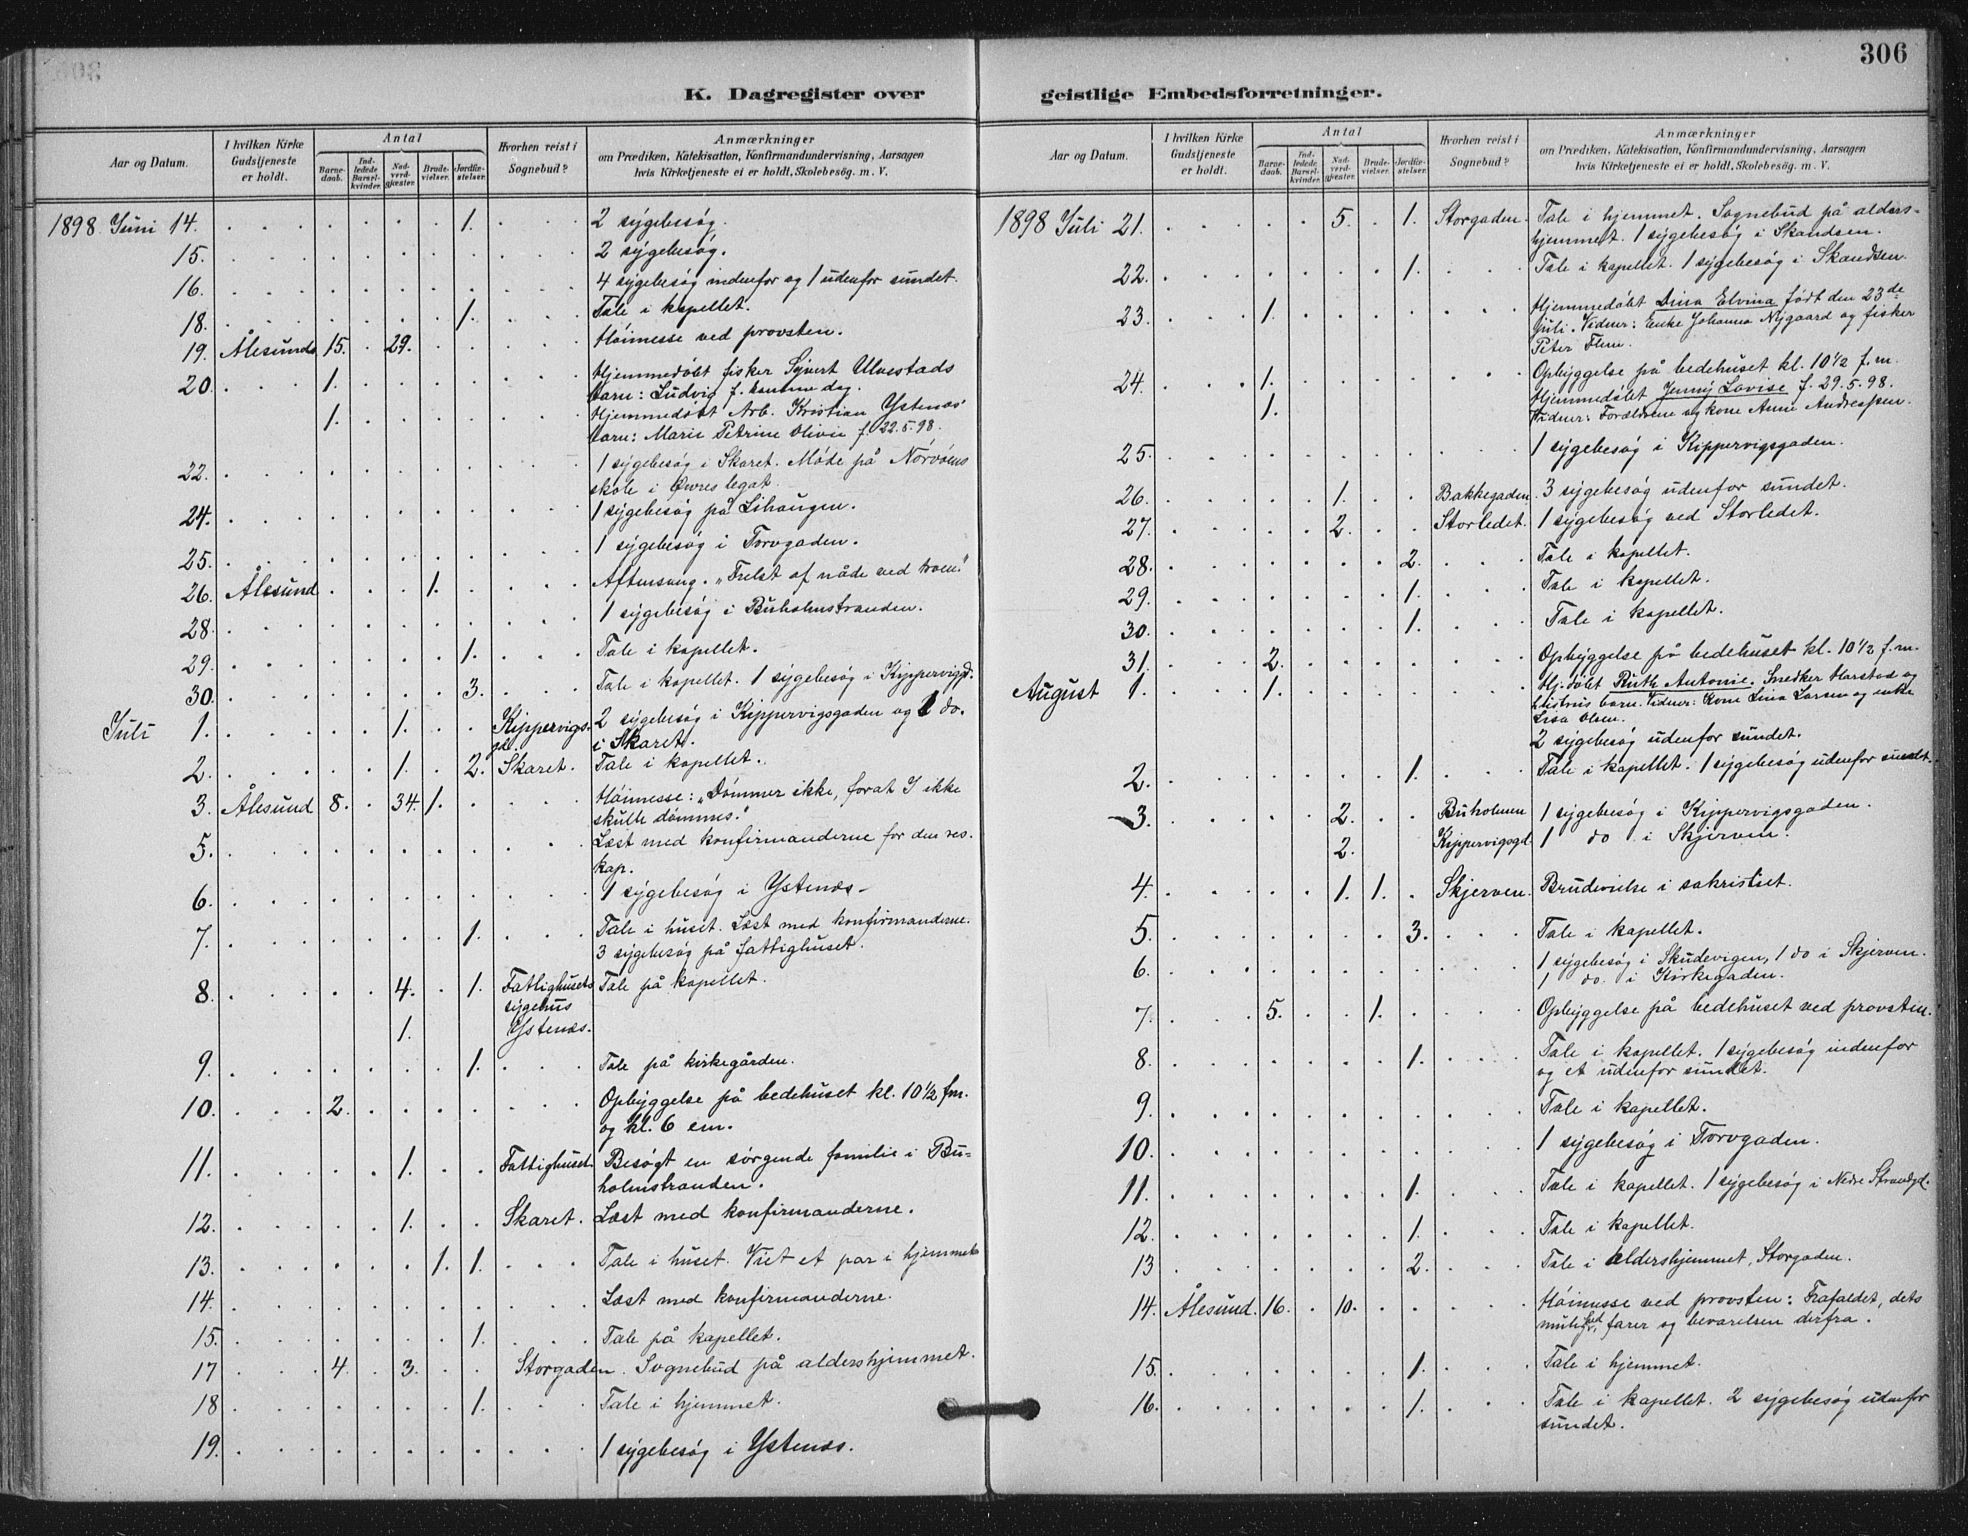 306
K. Dagregister over geistlige Embedsforretninger.
Aar og Datum. I hvilken Kirke Gudstjeneste er holdt. Antal Barnedaab. Indledede Barselkvinder. Nadverdgjæster. Brudevielser. Jordfæstelser. Hvorhen reist i Sognebud? Anmærkninger om Prædiken, Katekisation, Konfirmandundervisning, Aarsagen hvis Kirketjeneste ei er holdt, Skolebesøg. m. V.
1898 Juni 14. 1. 2 sygebesøg.
15. 2 sygebesøg.
16. 4 sygebesøg indenfor og 1 udenfor sundet.
18. 1. Tale i kapellet.
19. Ålesund 15. 29. Höimesse ved provsten.
20. 1. Hjemmedøbt fisker Syvert Ulvestads
barn: Ludvig f. samme dag.
1. Hjemmedøbt Arb. Kristian Ystenæs'
barn: Marie Petrine Olivie f. 22.5.98.
22. 1 sygebesøg i Skaret. Møde på Nörvöens
skole i Øvres legat.
24. 1 sygebesøg på Lihaugen.
25. 1 sygebesøg i Torvgaden.
26. Ålesund 1. Aftensang. „Frelst af nåde ved troen."
28. 1 sygebesøg i Buholmstranden.
29. 1. Tale i kapellet.
30. 3. Tale i kapellet. 1 sygebesøg i Kippervigd.
Juli 1. 1. Kippervigs- 2 sygebesøg i Kippervigsgaden og 1 do.
gd. i Skaret.
2. 1. 2. Skaret. Tale i kapellet.
3. Ålesund 8. 34. 1. Höimesse: „Dömmer ikke, forat I ikke
skulle dömmes."
5. Læst med konfirmanderne for den res.
kap.
6. 1 sygebesøg i Ystenæs.
7. 1. Tale i huset. Læst med konfirmanderne.
3 sygebesøg på fattighuset.
8. 4. 1. Fattighusets Tale på kapellet.
sygehus
1. Ystenæs.
9. 1. Tale på kirkegården.
10. 2. Opbyggelse på bedehuset kl. 10 1/2 fm.
og kl. 6 em.
11. 1. Fattighuset. Besøgt en sørgende familie i Bu-
holmstranden.
12. 1. Skaret. Læst med konfirmanderne.
13. 1. 1. Tale i huset. Viet et par i hjemmet
14. Læst med konfirmanderne.
15. 1. Tale på kapellet.
17 4. 3. Storgaden. Sognebud på aldershjemmet.
18 1. Tale i hjemmet.
19. 1 sygebesøg i Ystenæs.
Aar og Datum. I hvilken Kirke Gudstjeneste er holdt. Antal Barnedaab. Indledede Barselkvinder. Nadverdgjæster. Brudevielser. Jordfæstelser. Hvorhen reist i Sognebud? Anmærkninger om Prædiken, Katekisation, Konfirmandundervisning, Aarsagen hvis Kirketjeneste ei er holdt, Skolebesög. m. V.
1898 Juli 21. 5. 1. Storgaden. Tale i hjemmet. Sognebud på alders-
hjemmet. 1 sygebesøg i Skandsen.
22. 1. Tale i kapellet. 1 sygebesøg i Skandsen.
23. 1. Hjemmedøbt Dina Elvina født den 23de
Juli. Vidner: Enke Johanna Nygaard og fisker
Peter Flem.
24. 1. Opbyggelse på bedehuset kl. 10 1/2 f.m.
1. Hjemmedøbt Jenny Lovise f. 29.5.98.
Vidner: Forældrene og kone Anne Andreassen.
25. 1 sygebesøg i Kippervigsgaden.
26. 1. Bakkegaden 3 sygebesøg udenfor sundet.
27. 2. Storledet. 1 sygebesøg ved Storledet.
28. 2. Tale i kapellet.
29. 1. Tale i kapellet.
30. 1. Tale i kapellet.
31. 2. Opbyggelse på bedehuset kl. 10 1/2 f.m.
August 1. 1. Hj.døbt Ruth Antonie. Snedker Harstad og
hustrus barn. Vidner: Kone Lina Larsen og enke
Lisa Olsen.
2 sygebesøg udenfor sundet.
2. 1. Tale i kapellet. 1 sygebesøg udenfor sundet.
3. 2. Buholmen 1 sygebesøg i Kippervigsgaden.
2. Kippervigsgd. 1 do i Skjerven.
4. 1. 1. Skjerven. Brudevielse i sakristiet.
5. 3. Tale i kapellet.
6. 1 sygebesøg i Skudevigen, 1 do i Skjerven.
1 do. i Kirkegaden.
7. 5. 1. Opbyggelse på bedehuset ved provsten.
8. 1. Tale i kapellet. 1 sygebesøg indenfor
og et udenfor sundet.
9. Tale i kapellet.
10. 1 sygebesøg i Torvgaden.
11. 1. Tale i kapellet. 1 sygebesøg i Nedre Strandgd.
12. 1. Tale i kapellet.
13 2. Tale i aldershjemmet, Storgaden.
14. Ålesund. 16. 10. Höimesse ved provsten: Frafaldet, dets
mulighed, farer og bevarelsen derfra.
15. 1. Tale i hjemmet.
16. 1. Tale i kapellet. 2 sygebesøg udenfor
sundet.